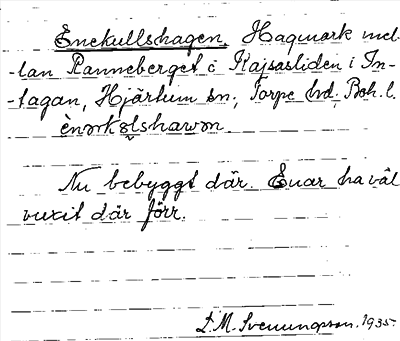 Enekullshagen, Hagmark mel-
-lan Ranneberget o Kajsasliden i In-
-tagan, Hjärtum sn, Torpe hd, Boh. l.
ènərkəlshawən
Nu bebyggt där. Enar ha väl
vuxit där förr.
L. M. Svenungsson. 1935.